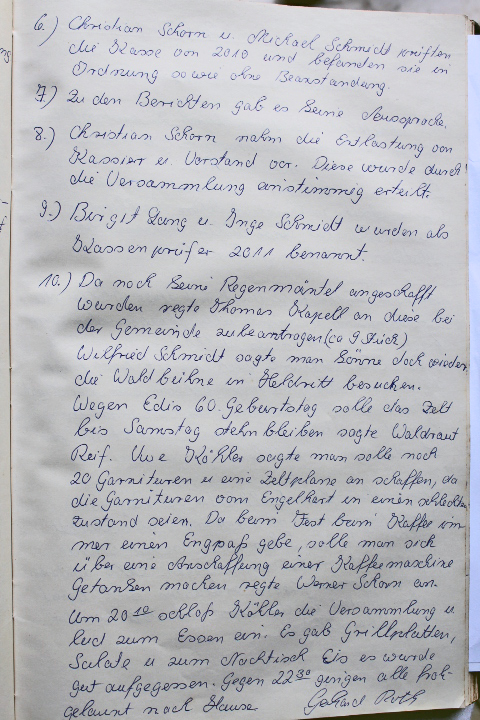 6.) Christian Schorn u. Michael Schmidt prüften
die Kasse von 2010 und befanden sie in
Ordnung sowie ohne Beanstandung.
7.) Zu den Berichten gab es keine Aussprache.
8.) Christian Schorn nahm die Entlastung von
Kassier u. Vorstand vor. Diese wurde durch
die Versammlung einstimmig erteilt.
9.) Birgit Lang u. Inge Schmidt wurden als
Kassenprüfer 2011 benannt.
10.) Da noch keine Regenmäntel angeschafft
wurden regte Thomas Kapell an diese bei
der Gemeinde zubeantragen (ca 9 Stück)
Wilfried Schmidt sagte man könne doch wieder
die Waldbühne in Heldritt besuchen.
Wegen Edis 60. Geburtstag solle das Zelt
bis Samstag stehn bleiben sagte Waldraut
Reif. Uwe Köhler sagte man solle noch
20 Garnituren u eine Zeltplane an schaffen, da
die Garnituren vom Engelhart in einen schlechten
zustand seien. Da beim Fest beim Kaffee im-
mer einen Engpaß gebe, solle man sich
über eine Anschaffung einer Kaffeemaschine
Getanken machen regte Werner Schorn an.
Um 20 10 schloß Köhler die Versammlung u
lud zum Essen ein. Es gab Grillplatten,
Salate u zum Nachtisch Eis es wurde
gut aufgegessen. Gegen 22 30 gingen alle froh-
gelaunt nach Hause. Gerhard Roth